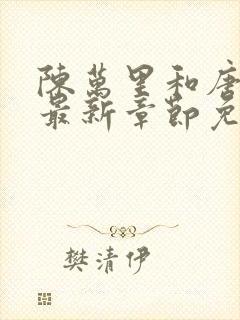 陳萬里和唐
最新章節免
樊清伊